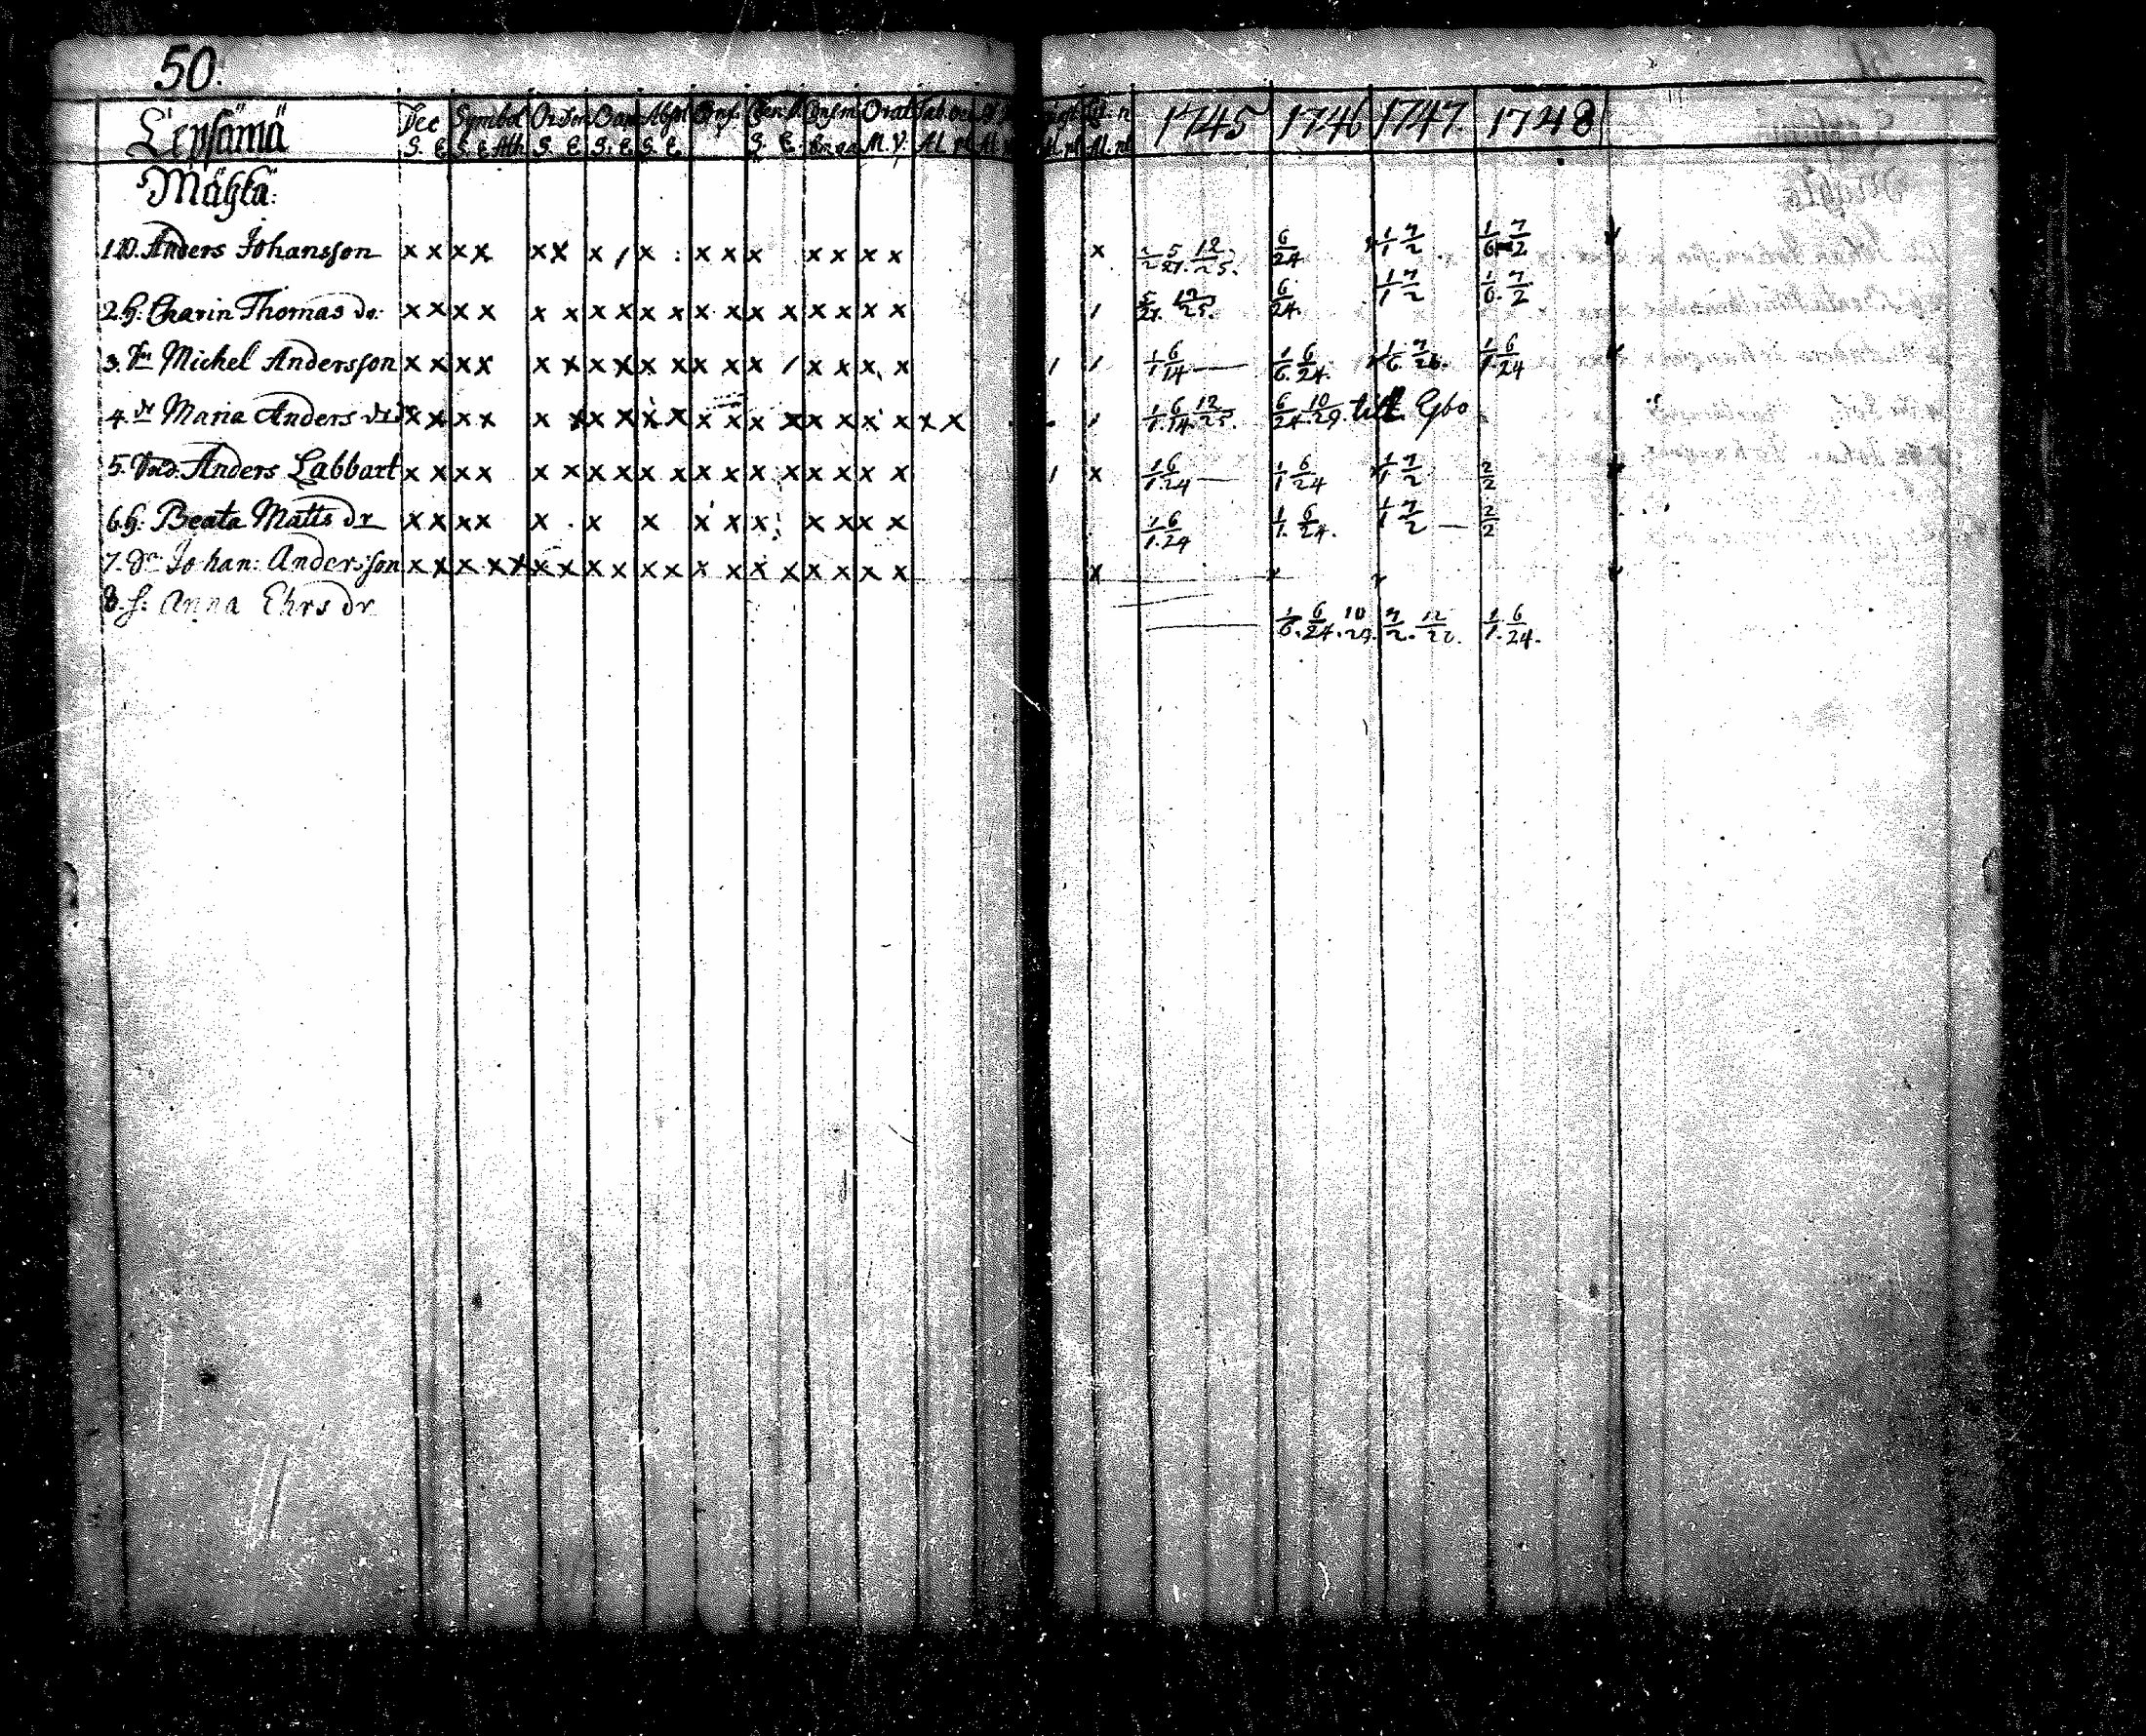 50.
Lepsämä Dec Symbol Or. Dom Bapt Absol Conf. Cœn. D. Orat Tab. oe. 1745 1746 1747 1748
S. E. S. E Ath S. E. S. E. S. E. S. E. M. V. Al. pl Al. pl Al. pl
Mähkä:
1. D. Anders Johansson x x x x x x x / x x x x x x x x x 5/27. 12/25. 6/24 1/1 7/2 1/6 7/2
2. H. Charin Thomas dr. x x x x x x x x x x x x x x x x x x / 5/27. 12/25. 6/24. 1/1 7/2 1/6. 7/2
3. Michel Andersson x x x x x x x x x x x x x / x x x x / / 1/1 6/14 — 1/6. 6/24. 1/6. 7/26. 1/1 6/24
4. dr Maria Anders dr x x x x x x x x x x x x x x x x x x x x / 1/1. 6/14. 12/25. 6/24. 10/29. till Esbo
5. Anders Labbart x x x x x x x x x x x x x x x x x x / x 1/1. 6/24 — 1/1 6/24 1/1 7/2 2/2
6. H. Beata Matts dr x x x x x . x x x x x x x x x 1/1. 6/24 1/1. 6/24. 1/1 7/2 — 2/2
7. Johan: Andersson x x x x x x x x x x x x x x x x x x x x
8. H: Anna Ehrs dr 1/6. 6/24. 10/29. 7/2. 12/26. 1/1. 6/24.